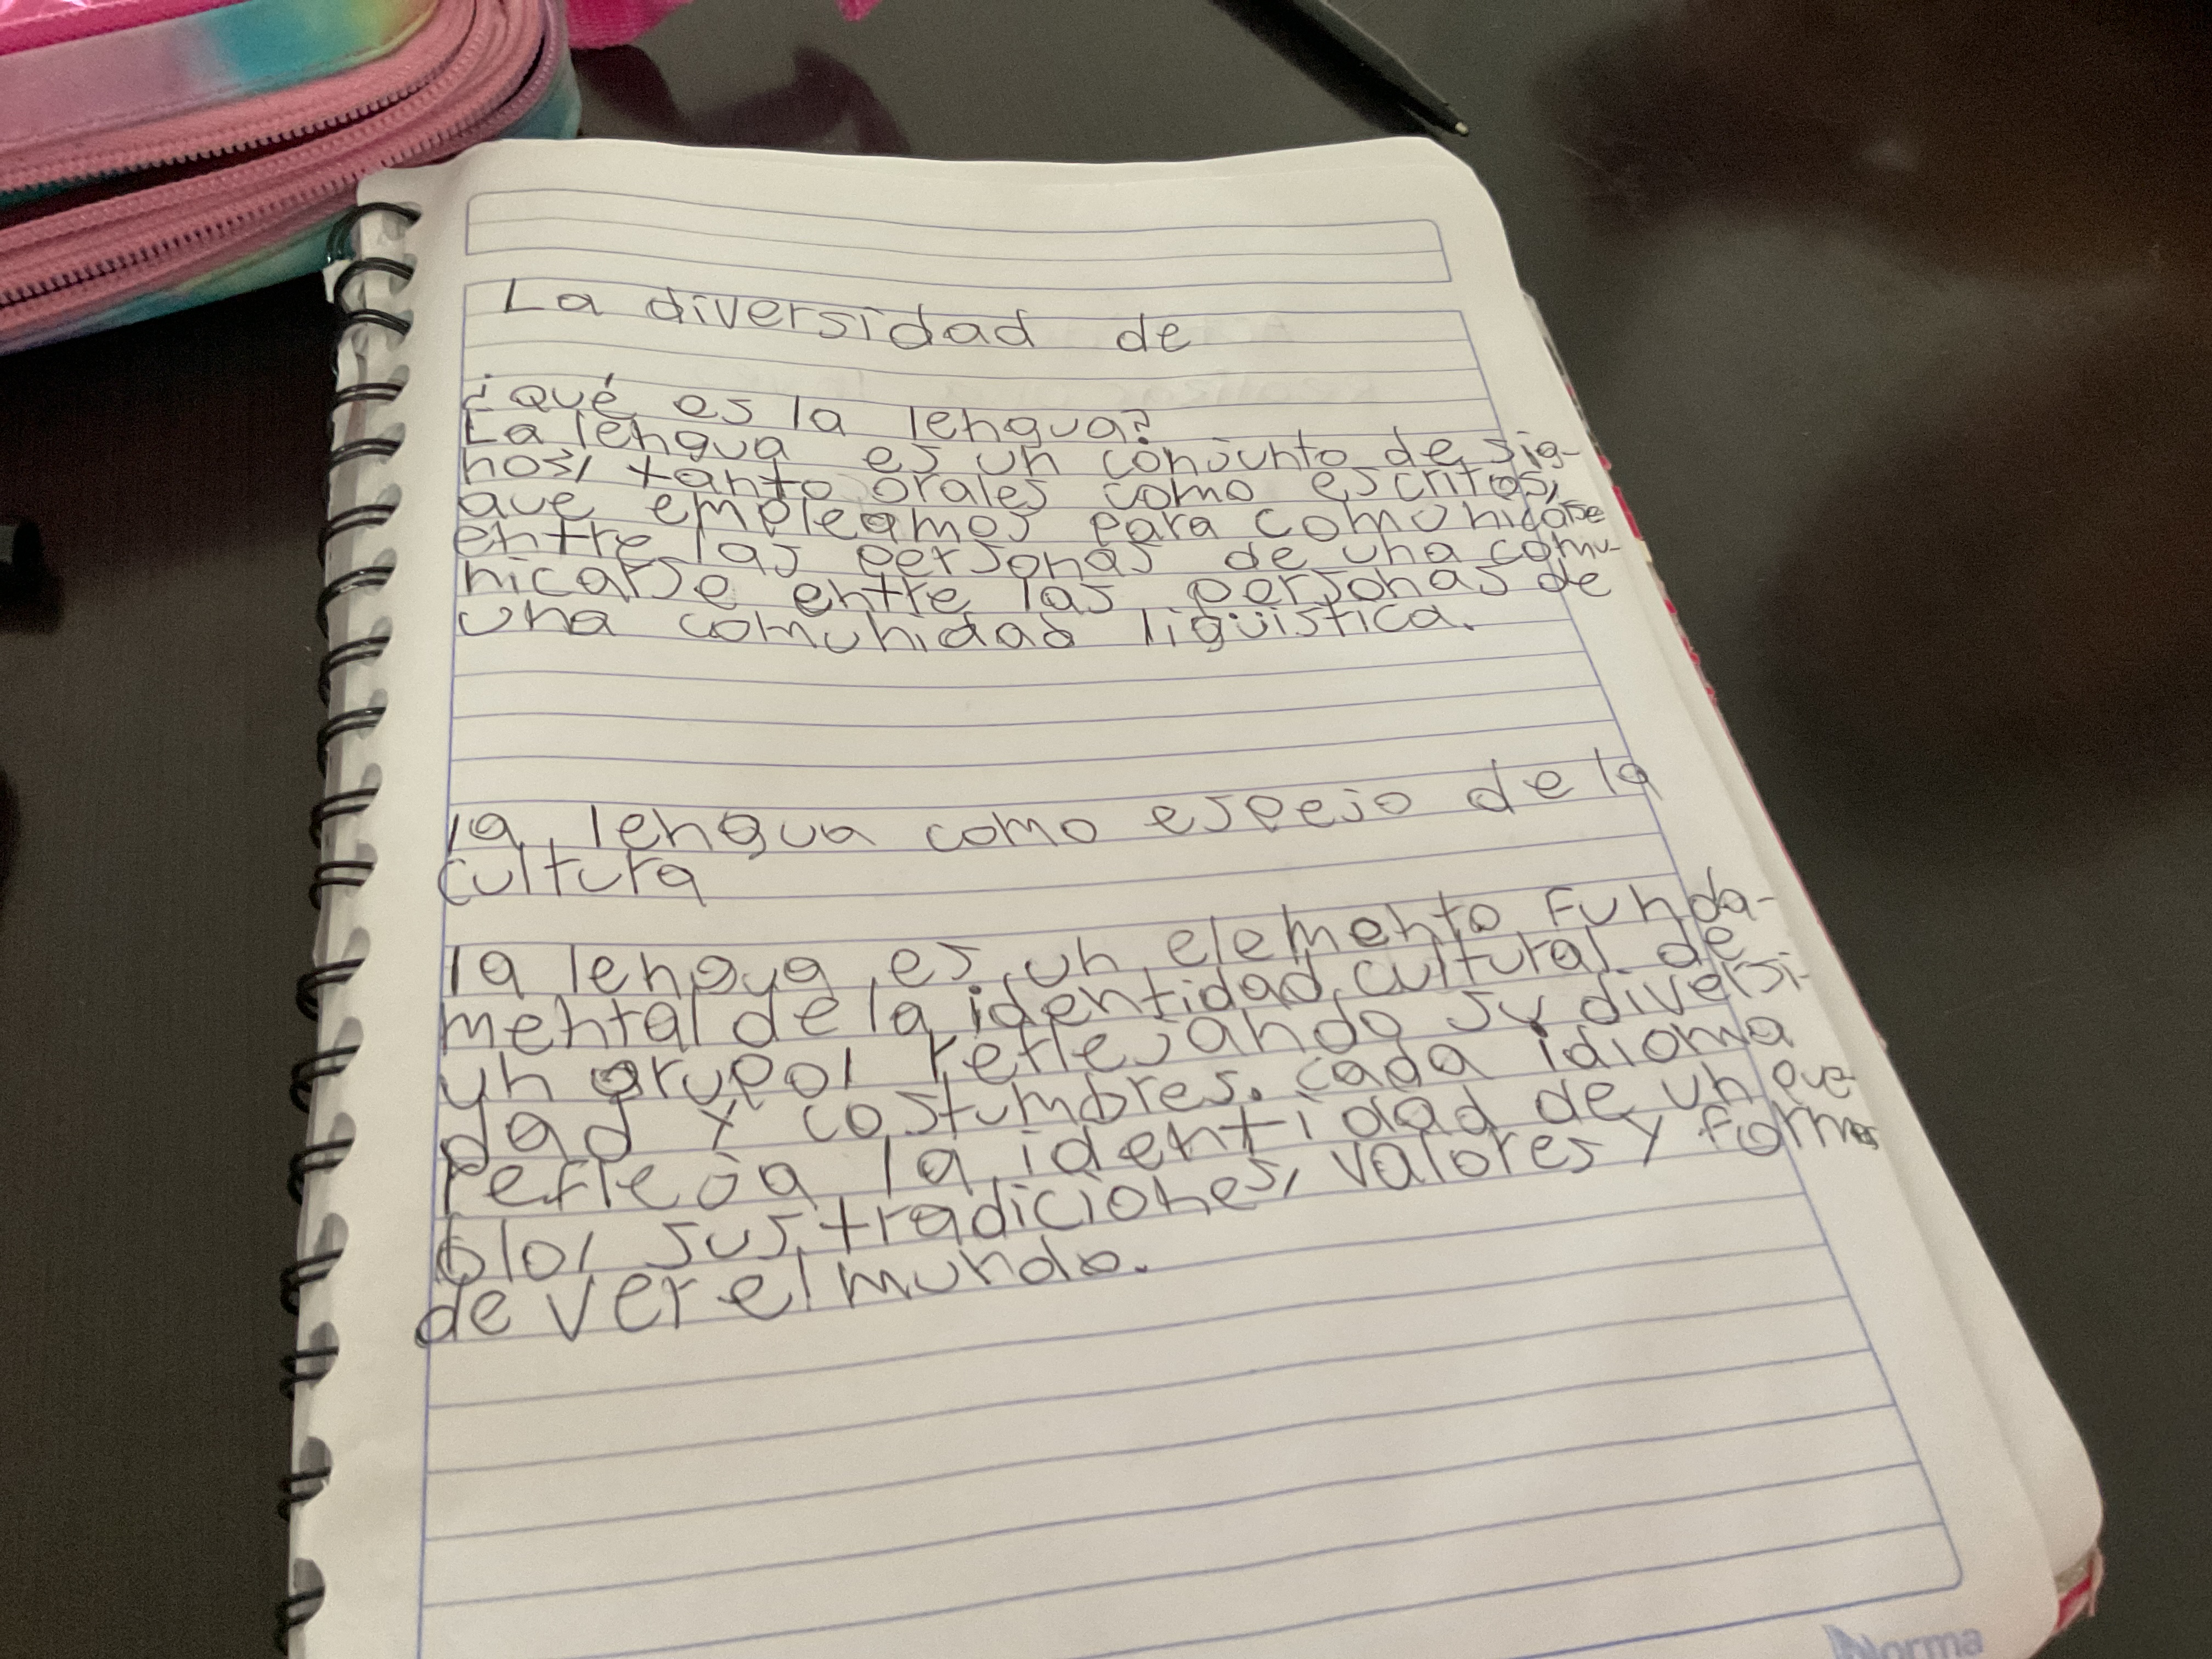 La diversidad de
¿Qué es la lengua?
La lengua es un conjunto de sig-
nos, tanto orales como escritos,
que empleamos para comunicarse
entre las personas de una comu-
nicarse entre las personas de
una comunidad ligüistica.
la lengua como espejo de la
cultura
la lengua es un elemento Funda-
mental de la identidad cultural de
un grupo, reflejando su diversi-
dad y costumbres. cada idioma
refleja la identidad de un pue-
blo, sus tradiciones, valores y forma
de ver el mundo.
Norma